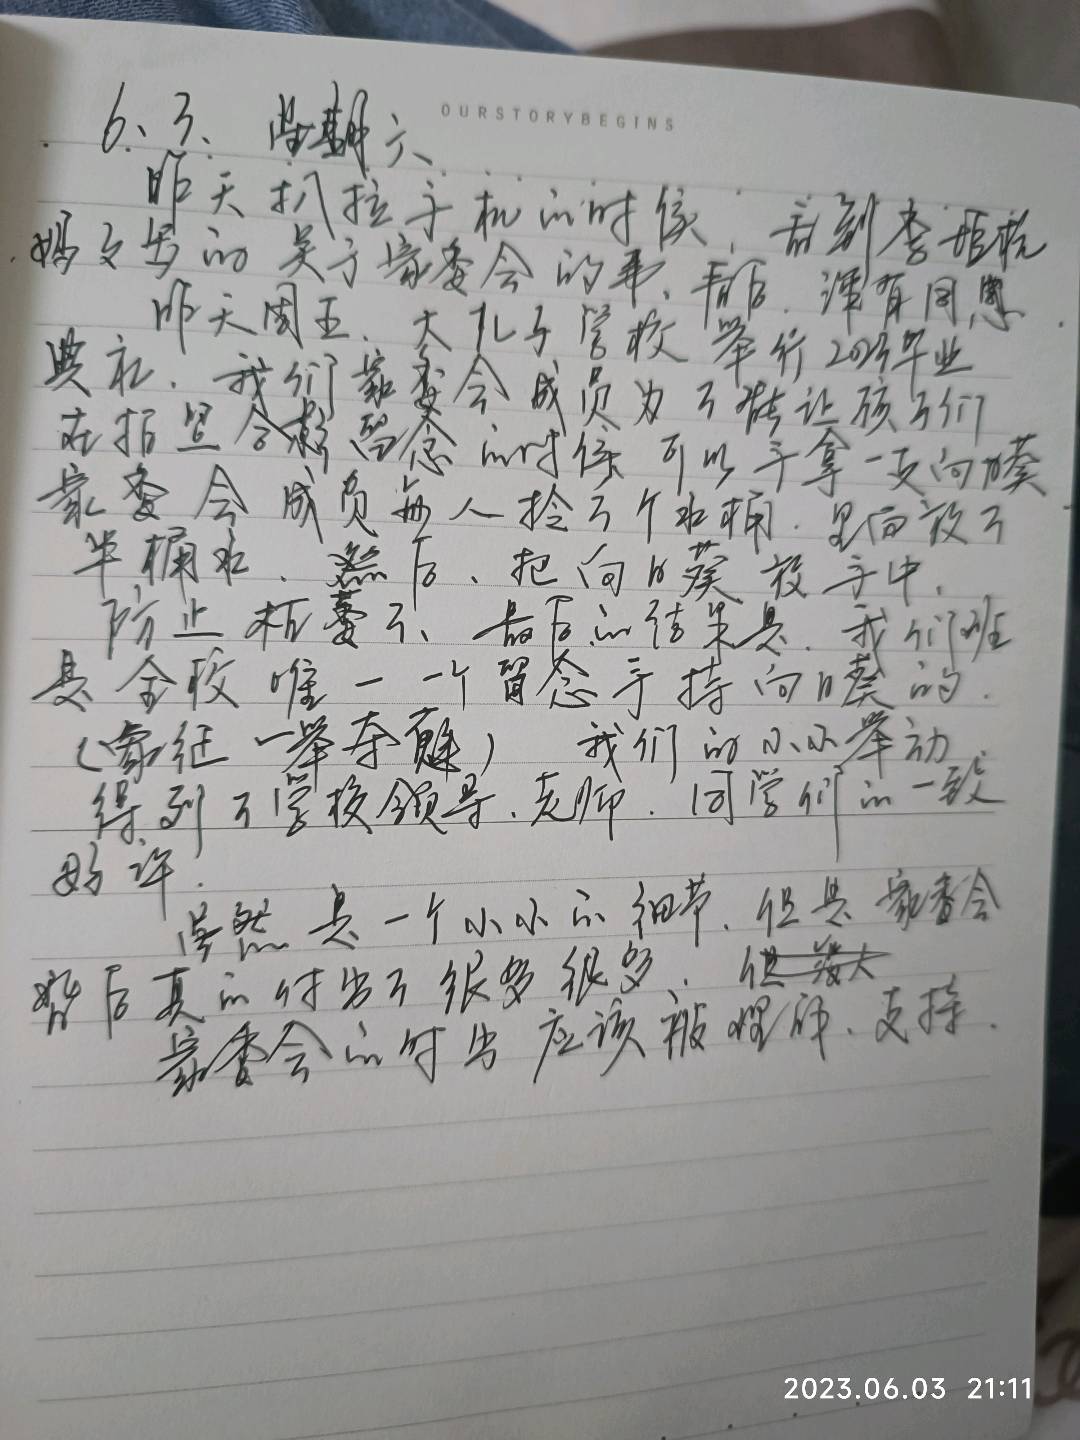 OURSTORYBEGINS
6、3、星期六、
昨天扒拉手机的时候，看到李
妈文字的关于家委会的事、看后．深有同感．
昨天周五、大儿子学校举行2023毕业
典礼．我们家委会成员为了能让孩子们
在拍照合影留念的时候可以手拿一支向日葵
家委会成员每人拎了个水桶．里面放了
半桶水、然后、把向日葵放手中、
防止枯萎了、最后的结果是．我们班
是全校唯一一个留念手持向日葵的．
（家征一举夺魁）我们的小小举动
得到了学校领导、老师．同学们的一致
好评．
虽然是一个小小的细节、但是家委会
背后真的付出了很多很多、但
家委会的付出应该被理解、支持．
2023.06.03 21:11